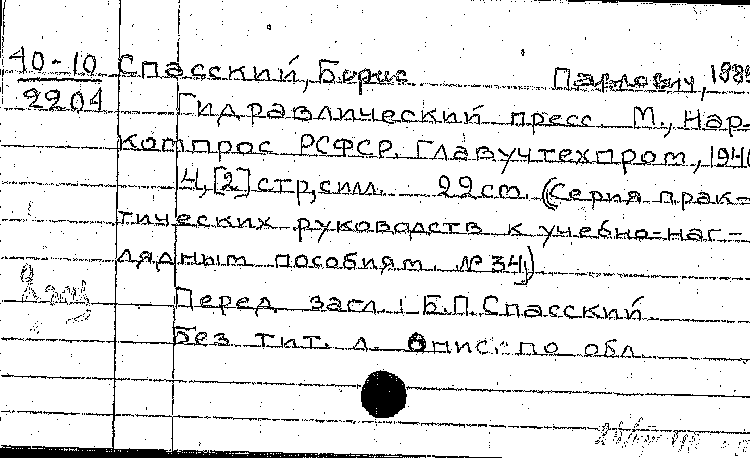 40-10 Спасский, Борис Павлович,
2204 Гидравлический пресс М., Нар-
компрос РСФСР. Главучтехпром, 194
4, [2] стр, с илл. 22 см. (Серия прак-
тических руководств к учебно-наг-
лядным пособиям. № 34.)
2 экз
Перед загл.: Б.П. Спасский
Без тит. л. Опис. по обл.